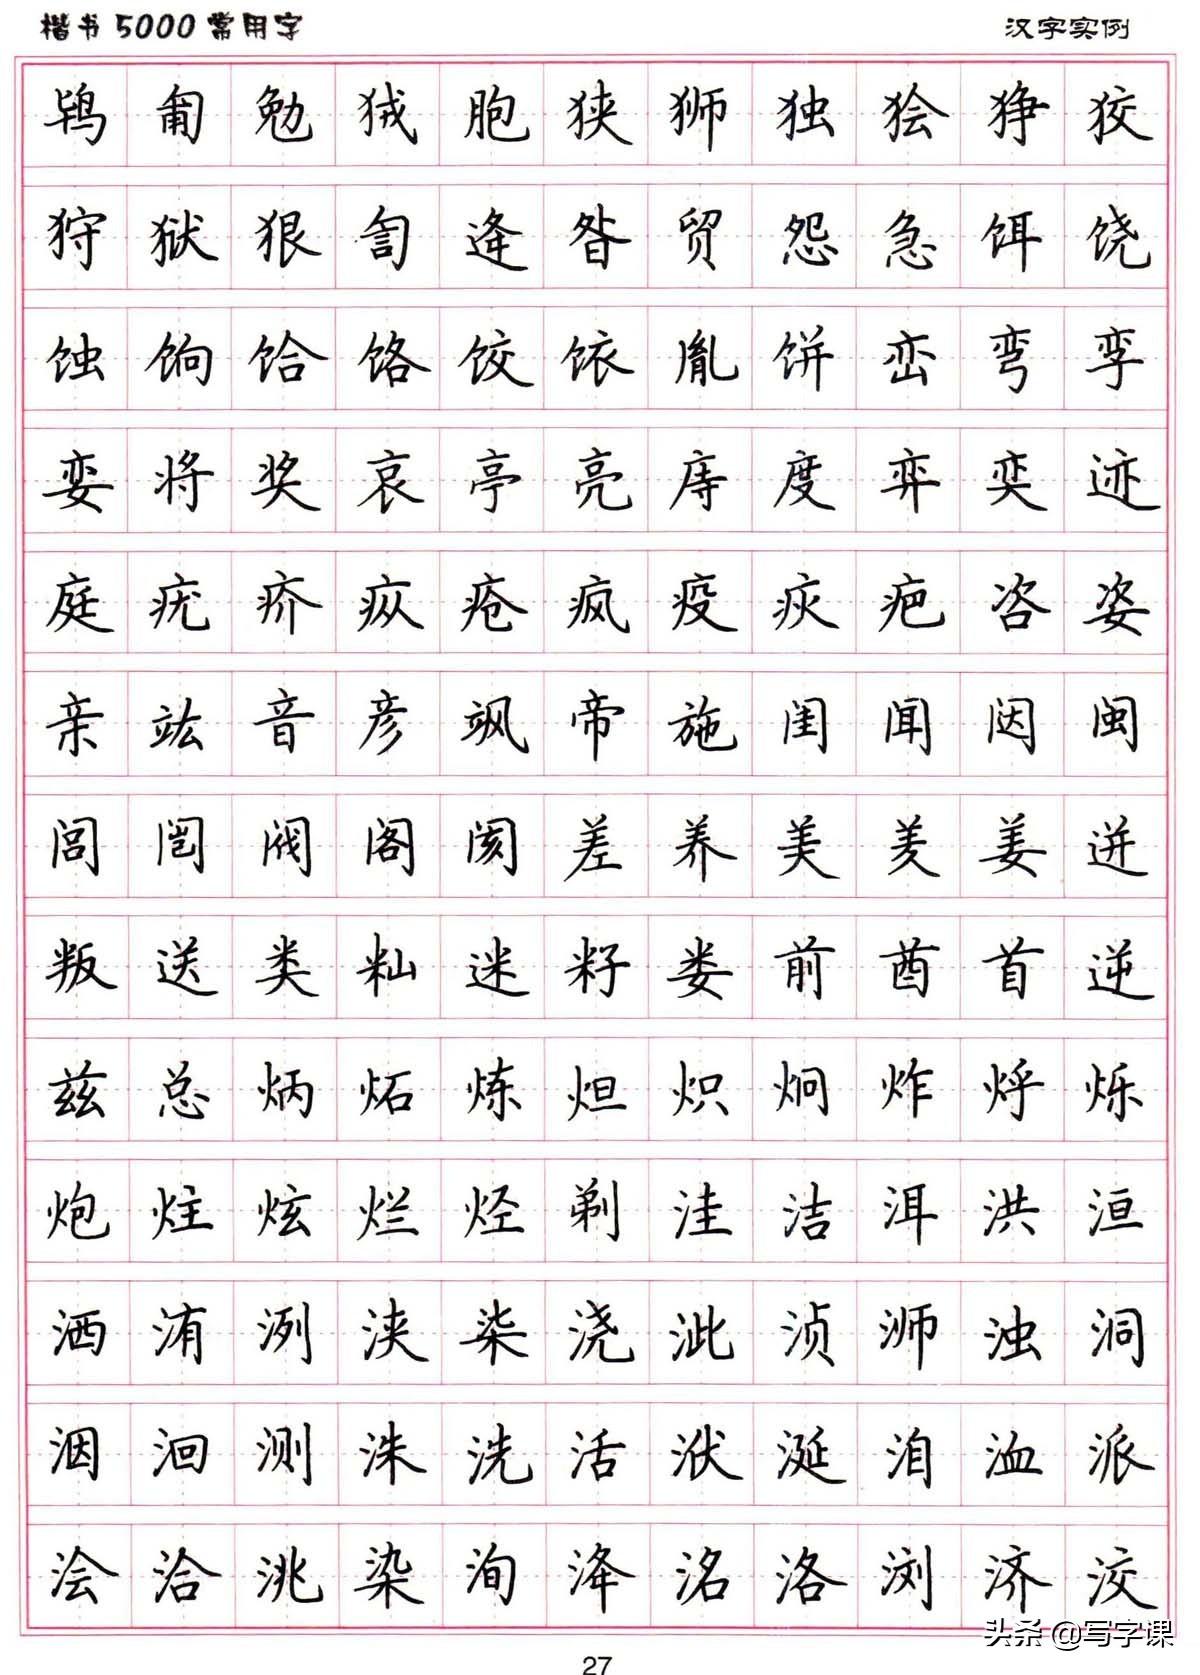 楷书5000常用字 汉字实例
鸨 匍 勉 狨 胞 狭 狮 独 狯 狰 狡
狩 狱 狠 訇 逄 昝 贸 怨 急 饵 饶
蚀 饷 饸 饹 饺 饻 胤 饼 峦 弯 孪
娈 将 奖 哀 亭 亮 庤 度 弈 奕 迹
庭 疣 疥 疭 疮 疯 疫 疢 疤 咨 姿
亲 竑 音 彦 飒 帝 施 闺 闻 闼 闽
闾 闿 阀 阁 阂 差 养 美 羑 姜 迸
叛 送 类 籼 迷 籽 娄 前 酋 首 逆
兹 总 炳 炻 炼 炟 炽 炯 炸 烀 烁
炮 炷 炫 烂 烃 剃 洼 洁 洱 洪 洹
洒 洧 洌 浃 柒 浇 泚 浈 浉 浊 洞
洇 洄 测 洙 洗 活 洑 涎 洎 洫 派
浍 洽 洮 染 洵 洚 洺 洛 浏 济 洨
头条 @写字课
27